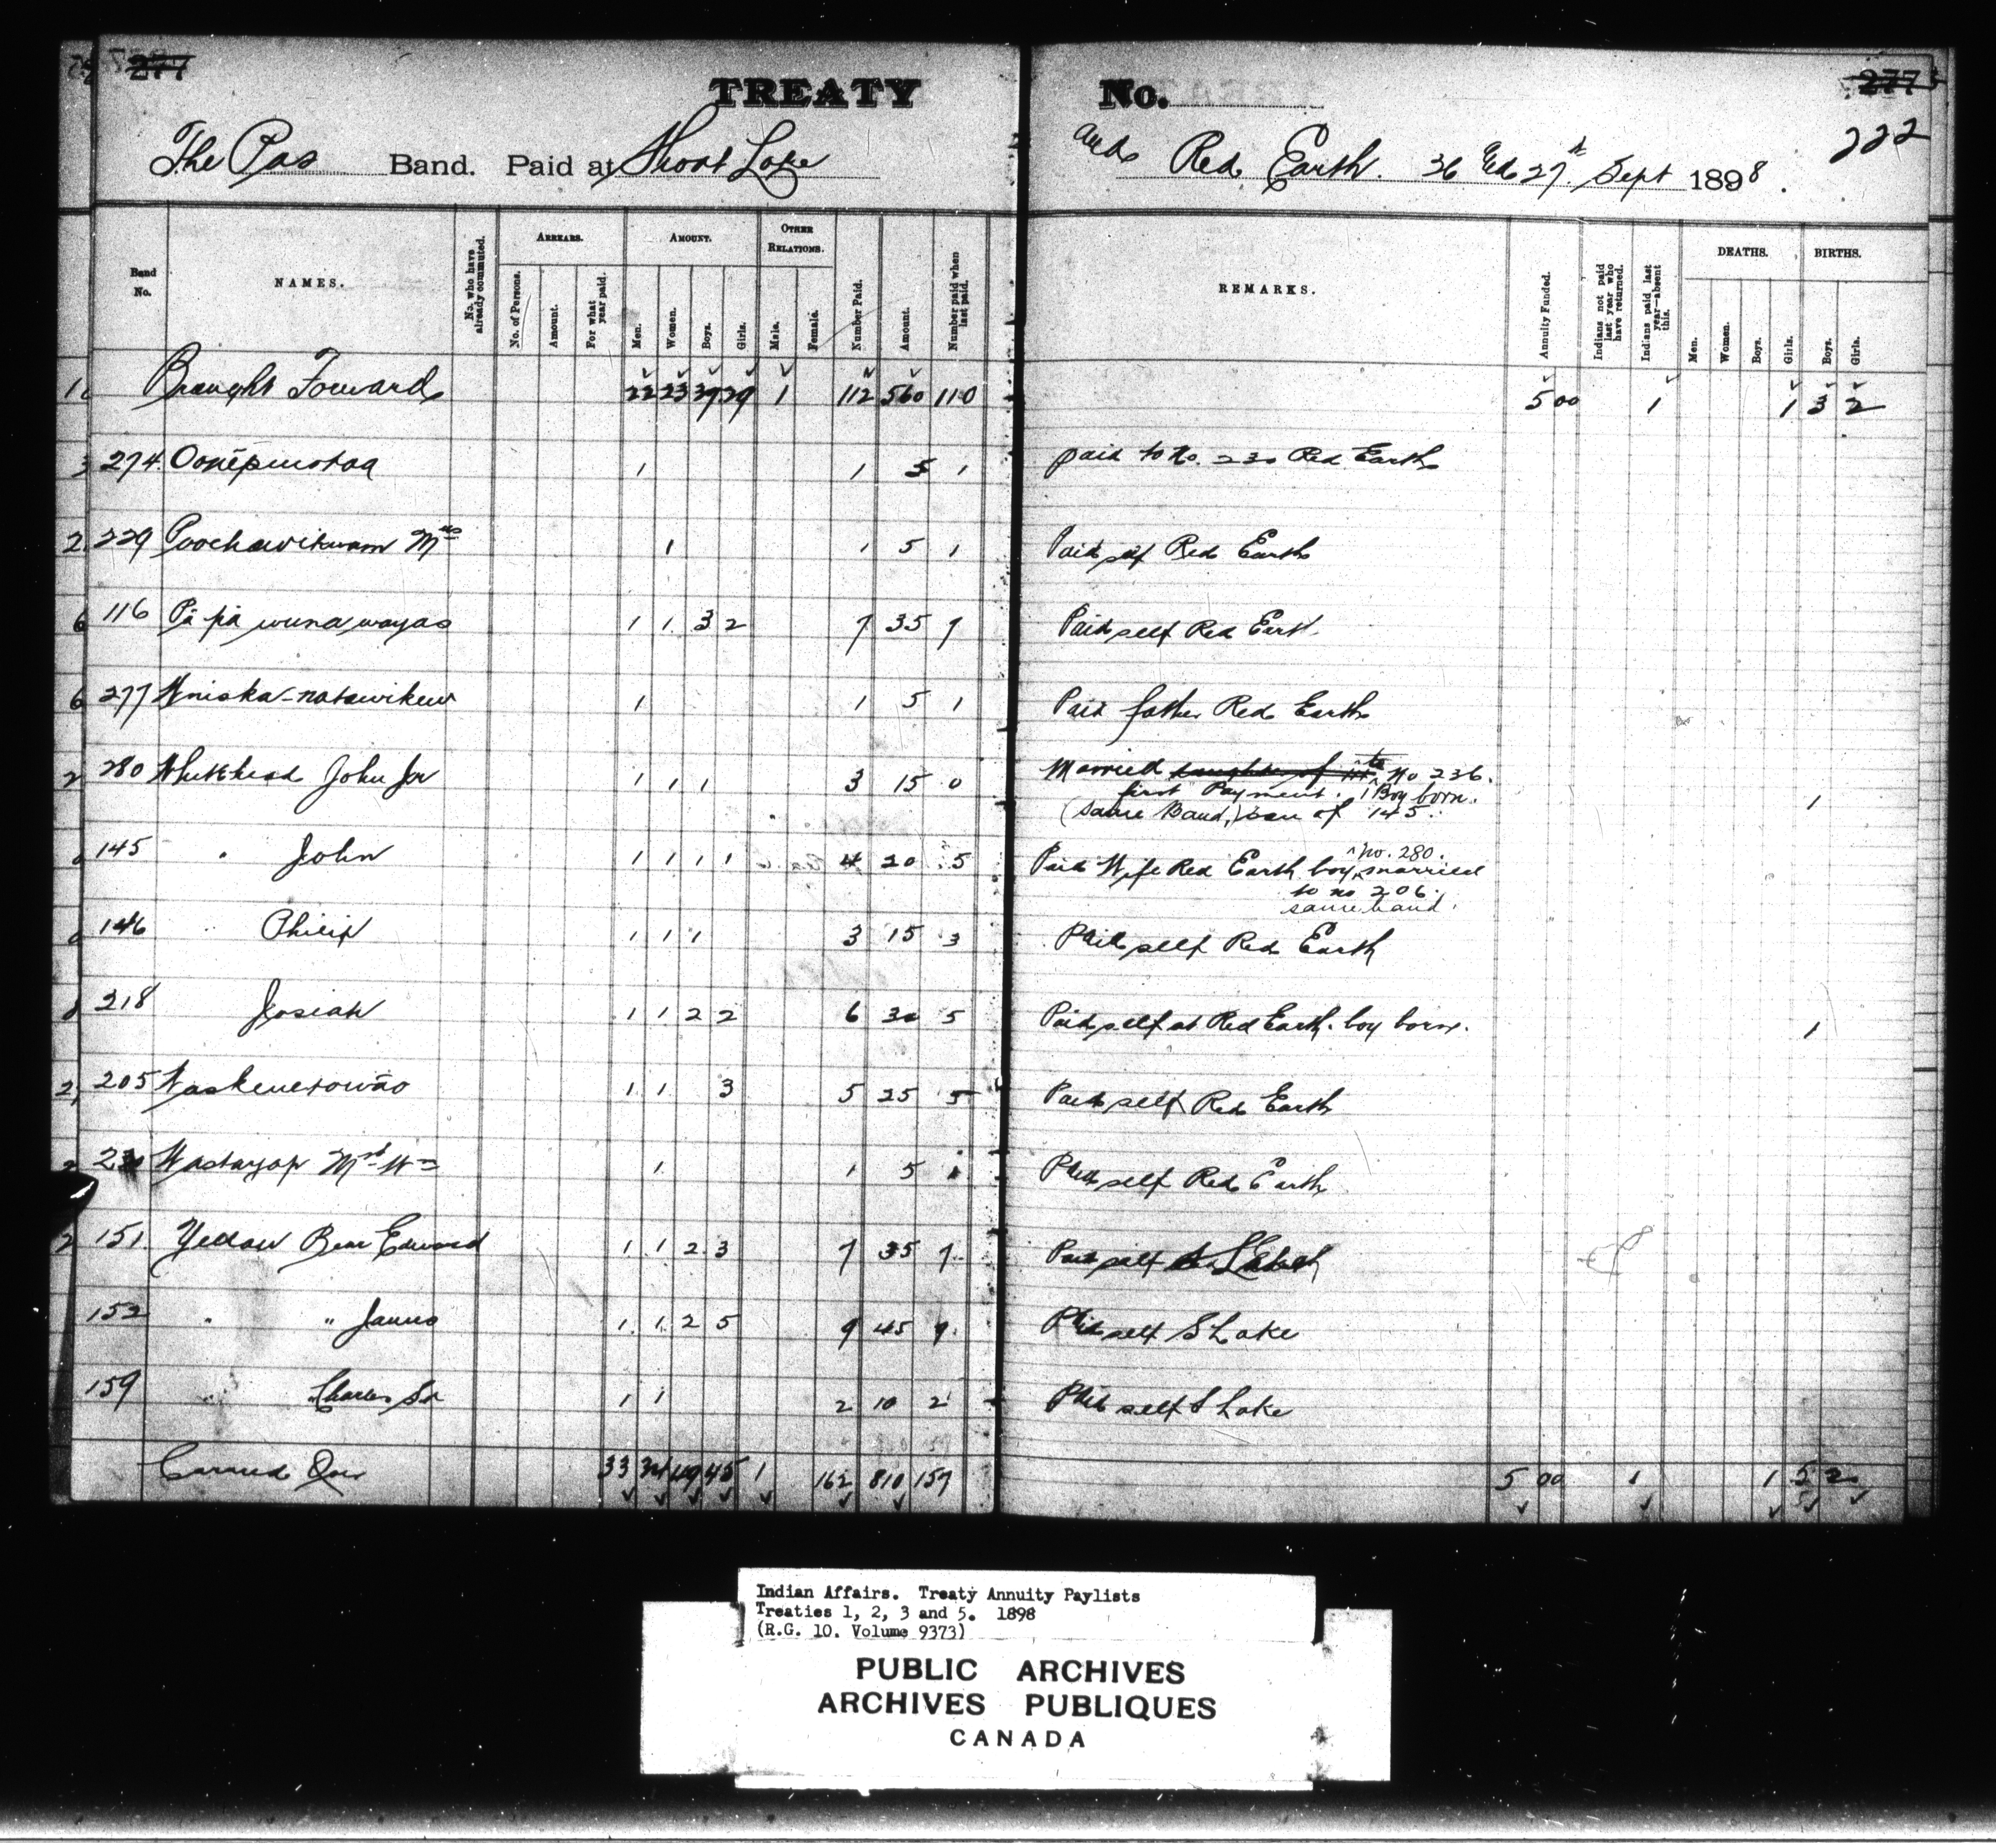 277
277
TREATY No.
222
The Pas Band. Paid at Shoal Lake and Red Earth. 26 & 27th Sept 1898.
Band No.
NAMES.
No. who have already commuted.
ARREARS.
No. of Persons.
Amount.
For what year paid.
AMOUNT.
Men.
Women.
Boys.
Girls.
OTHER RELATIONS.
Male.
Female.
Number Paid.
Amount.
Number paid when last paid.
REMARKS.
Annuity Funded.
Indians not paid last year who have returned.
Indians paid last year—absent this.
DEATHS.
Men.
Women.
Boys.
Girls.
BIRTHS.
Boys.
Girls.
Brought Forward 22 23 39 29 1 112 560 110 5 00 1 1 3 2
274 1 1 5 1 paid to No. 230 Red Earth
229 Poochawikwam Mrs 1 1 5 1 Paid self Red Earth
116 Pa pa wuna wayas 1 1 3 2 7 35 7 Paid self Red Eart.
277 Wniska-notawikew 1 1 5 1 Paid father Red Earth
280 Whitehead John Jnr 1 1 1 3 15 0 Married daughter of to No 236.
first Payment. 1 Boy born. 1
(same Band,) son of 145.
145 " John 1 1 1 1 4 20 5 Paid Wife Red Earth boy no. 280. married
to no 206.
same band.
146 " Philip 1 1 1 3 15 3 Paid self Red Earth
218 Josiah 1 1 2 2 6 30 5 Paid self at Red Earth. boy born. 1
205 Waskenetowāo 1 1 3 5 25 5 Paid self Red Earth
230 Wastayap Mrs Wm 1 1 5 1 Paid self Red Earth
151 Yellow Bear Edward 1 1 2 3 7 35 7 Paid self
152 " " James 1 1 2 5 9 45 9 Paid self S Lake
159 " Charles Sr 1 1 2 10 2 Paid self S Lake
Carried Over 33 34 49 45 1 162 810 157 5 00 1 1 5 2
Indian Affairs. Treaty Annuity Paylists
Treaties 1, 2, 3 and 5. 1898
(R.G. 10. Volume 9373)
PUBLIC ARCHIVES
ARCHIVES PUBLIQUES
CANADA